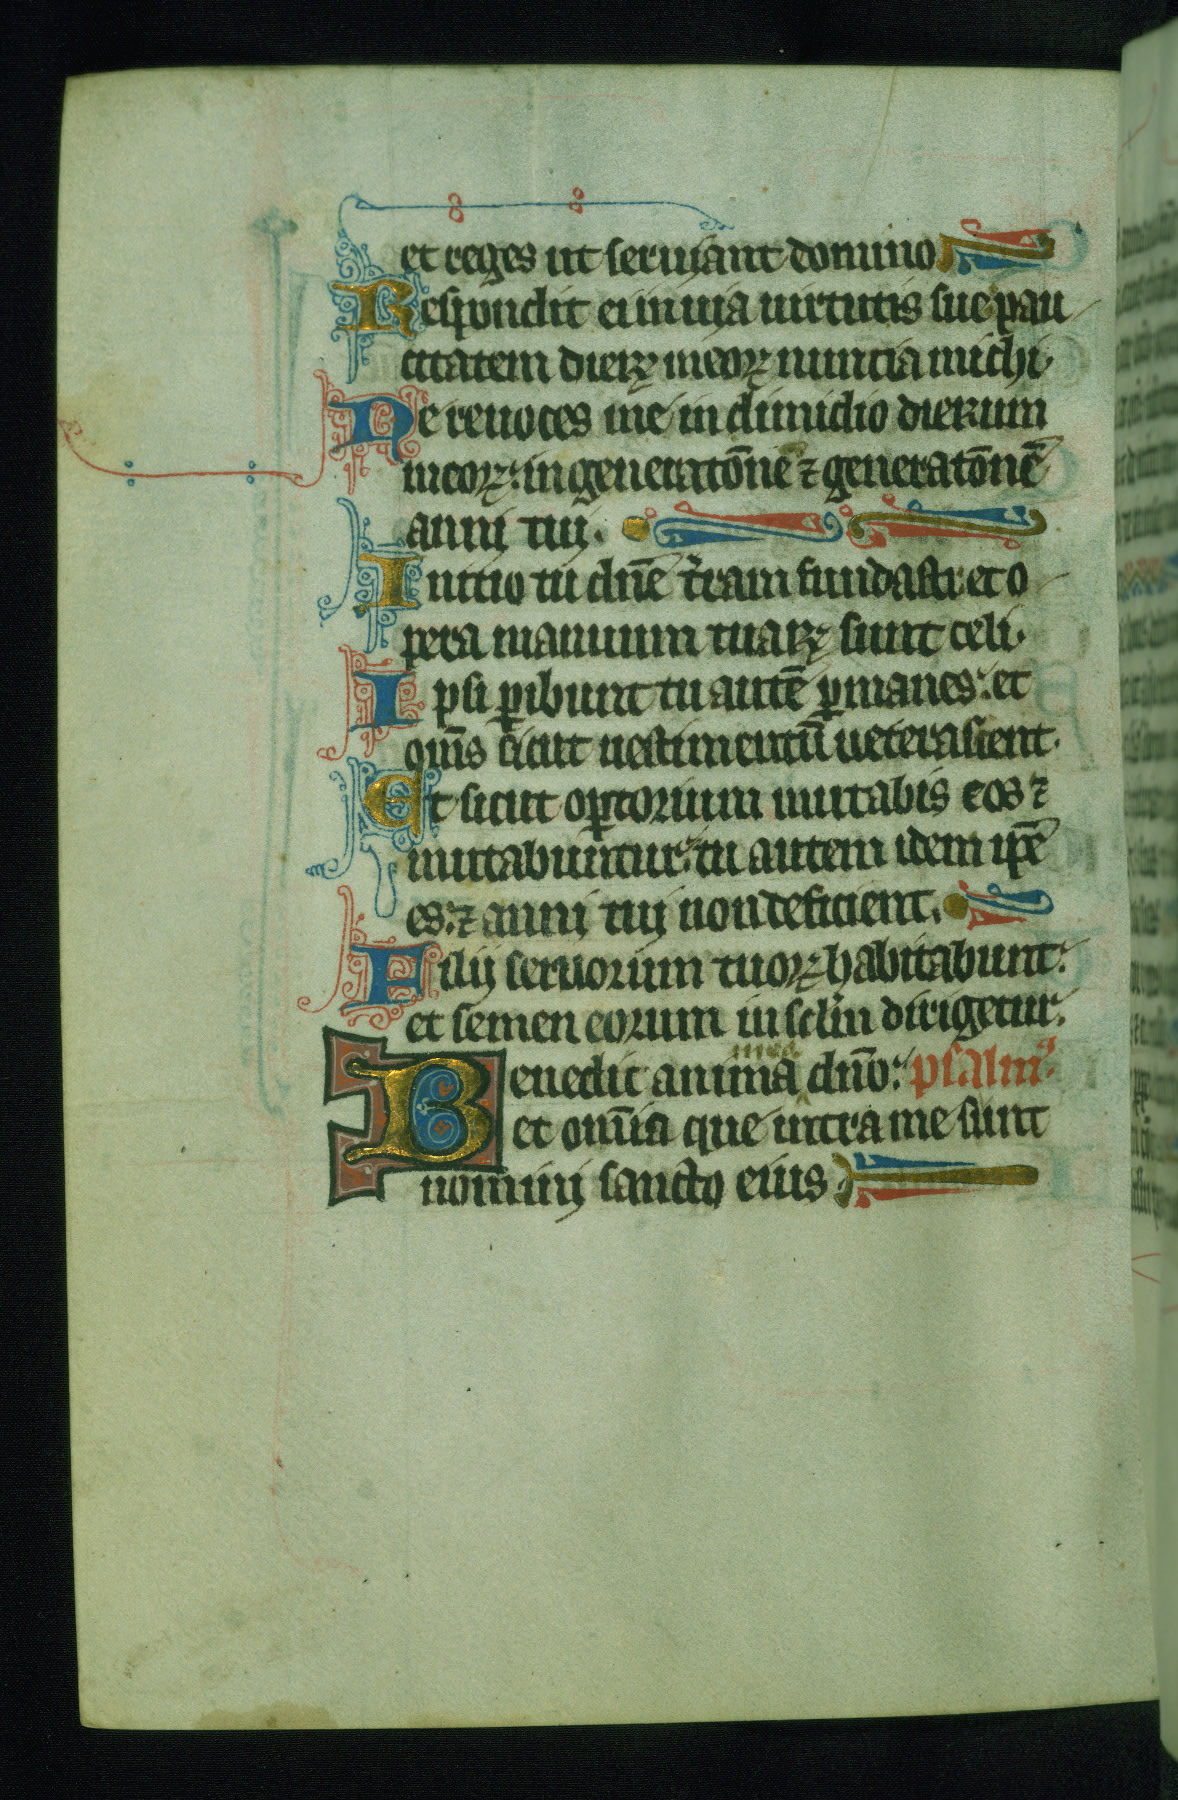 et reges ut seruiant domino
Respondit ei in uia uirtutis sue pau
citatem dierꝝ meoꝝ nuncia michi.
Ne reuoces me in dimidio dierum
meoꝝ: in generatōne ⁊ generatōnē
anni tui.
Initio tu dn̄e t̄ram fundasti: et o
pera manuum tuarꝝ sunt celi.
Ipsi ꝑibunt tu autē ꝑmanes: et
om̄s sicut uestimentū ueterascent.
Et sicut oꝑtorium mutabis eos ⁊
mutabuntur: tu autem idem ip̄e
es: ⁊ anni tui non deficient.
Filij seruorum tuoꝝ habitabunt:
et semen eorum in sclm̄ dirigetur.
Benedic anima mea dn̄o: psalmꝰ.
et om̄ia que intra me sunt
nomini sancto eius